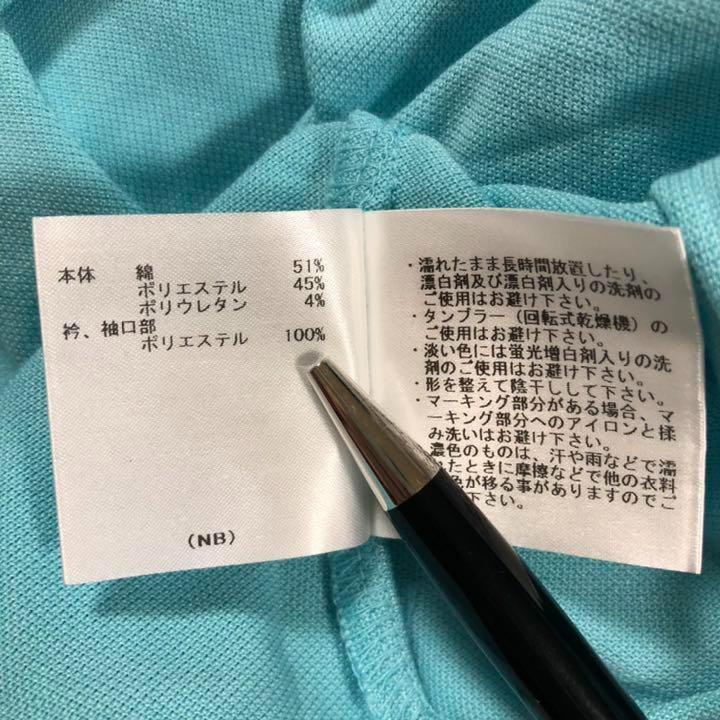 本体 綿 51%
ポリエステル 45%
ポリウレタン 4%
衿、袖口部
ポリエステル 100%
(NB)
・濡れたまま長時間放置したり、
漂白剤及び漂白剤入りの洗剤の
ご使用はお避け下さい。
・タンブラー(回転式乾燥機)の
ご使用はお避け下さい。
・淡い色には蛍光増白剤入りの洗
剤のご使用はお避け下さい。
・形を整えて陰干しして下さい。
・マーキング部分がある場合、マ
ーキング部分へのアイロンと揉
み洗いはお避け下さい。
濃色のものは、汗や雨などで濡
たときに摩擦などで他の衣料
色が移る事がありますのでご
下さい。